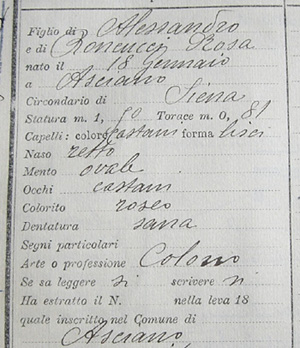 Figlio di Alessandro
e di Roncucci Rosa
nato il 18 Gennaio
a Asciano
Circondario di Siena
Statura m. 1, 50 Torace m. 0, 81
Capelli: colore castani forma lisci
Naso retto
Mento ovale
Occhi castani
Colorito roseo
Dentatura sana
Segni particolari
Arte o professione Colono
Se sa leggere si scrivere si
Ha estratto il N. nella leva 18
quale inscritto nel Comune di
Asciano